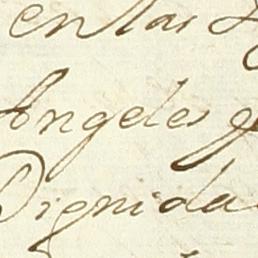 en las
Angeles
Dignida